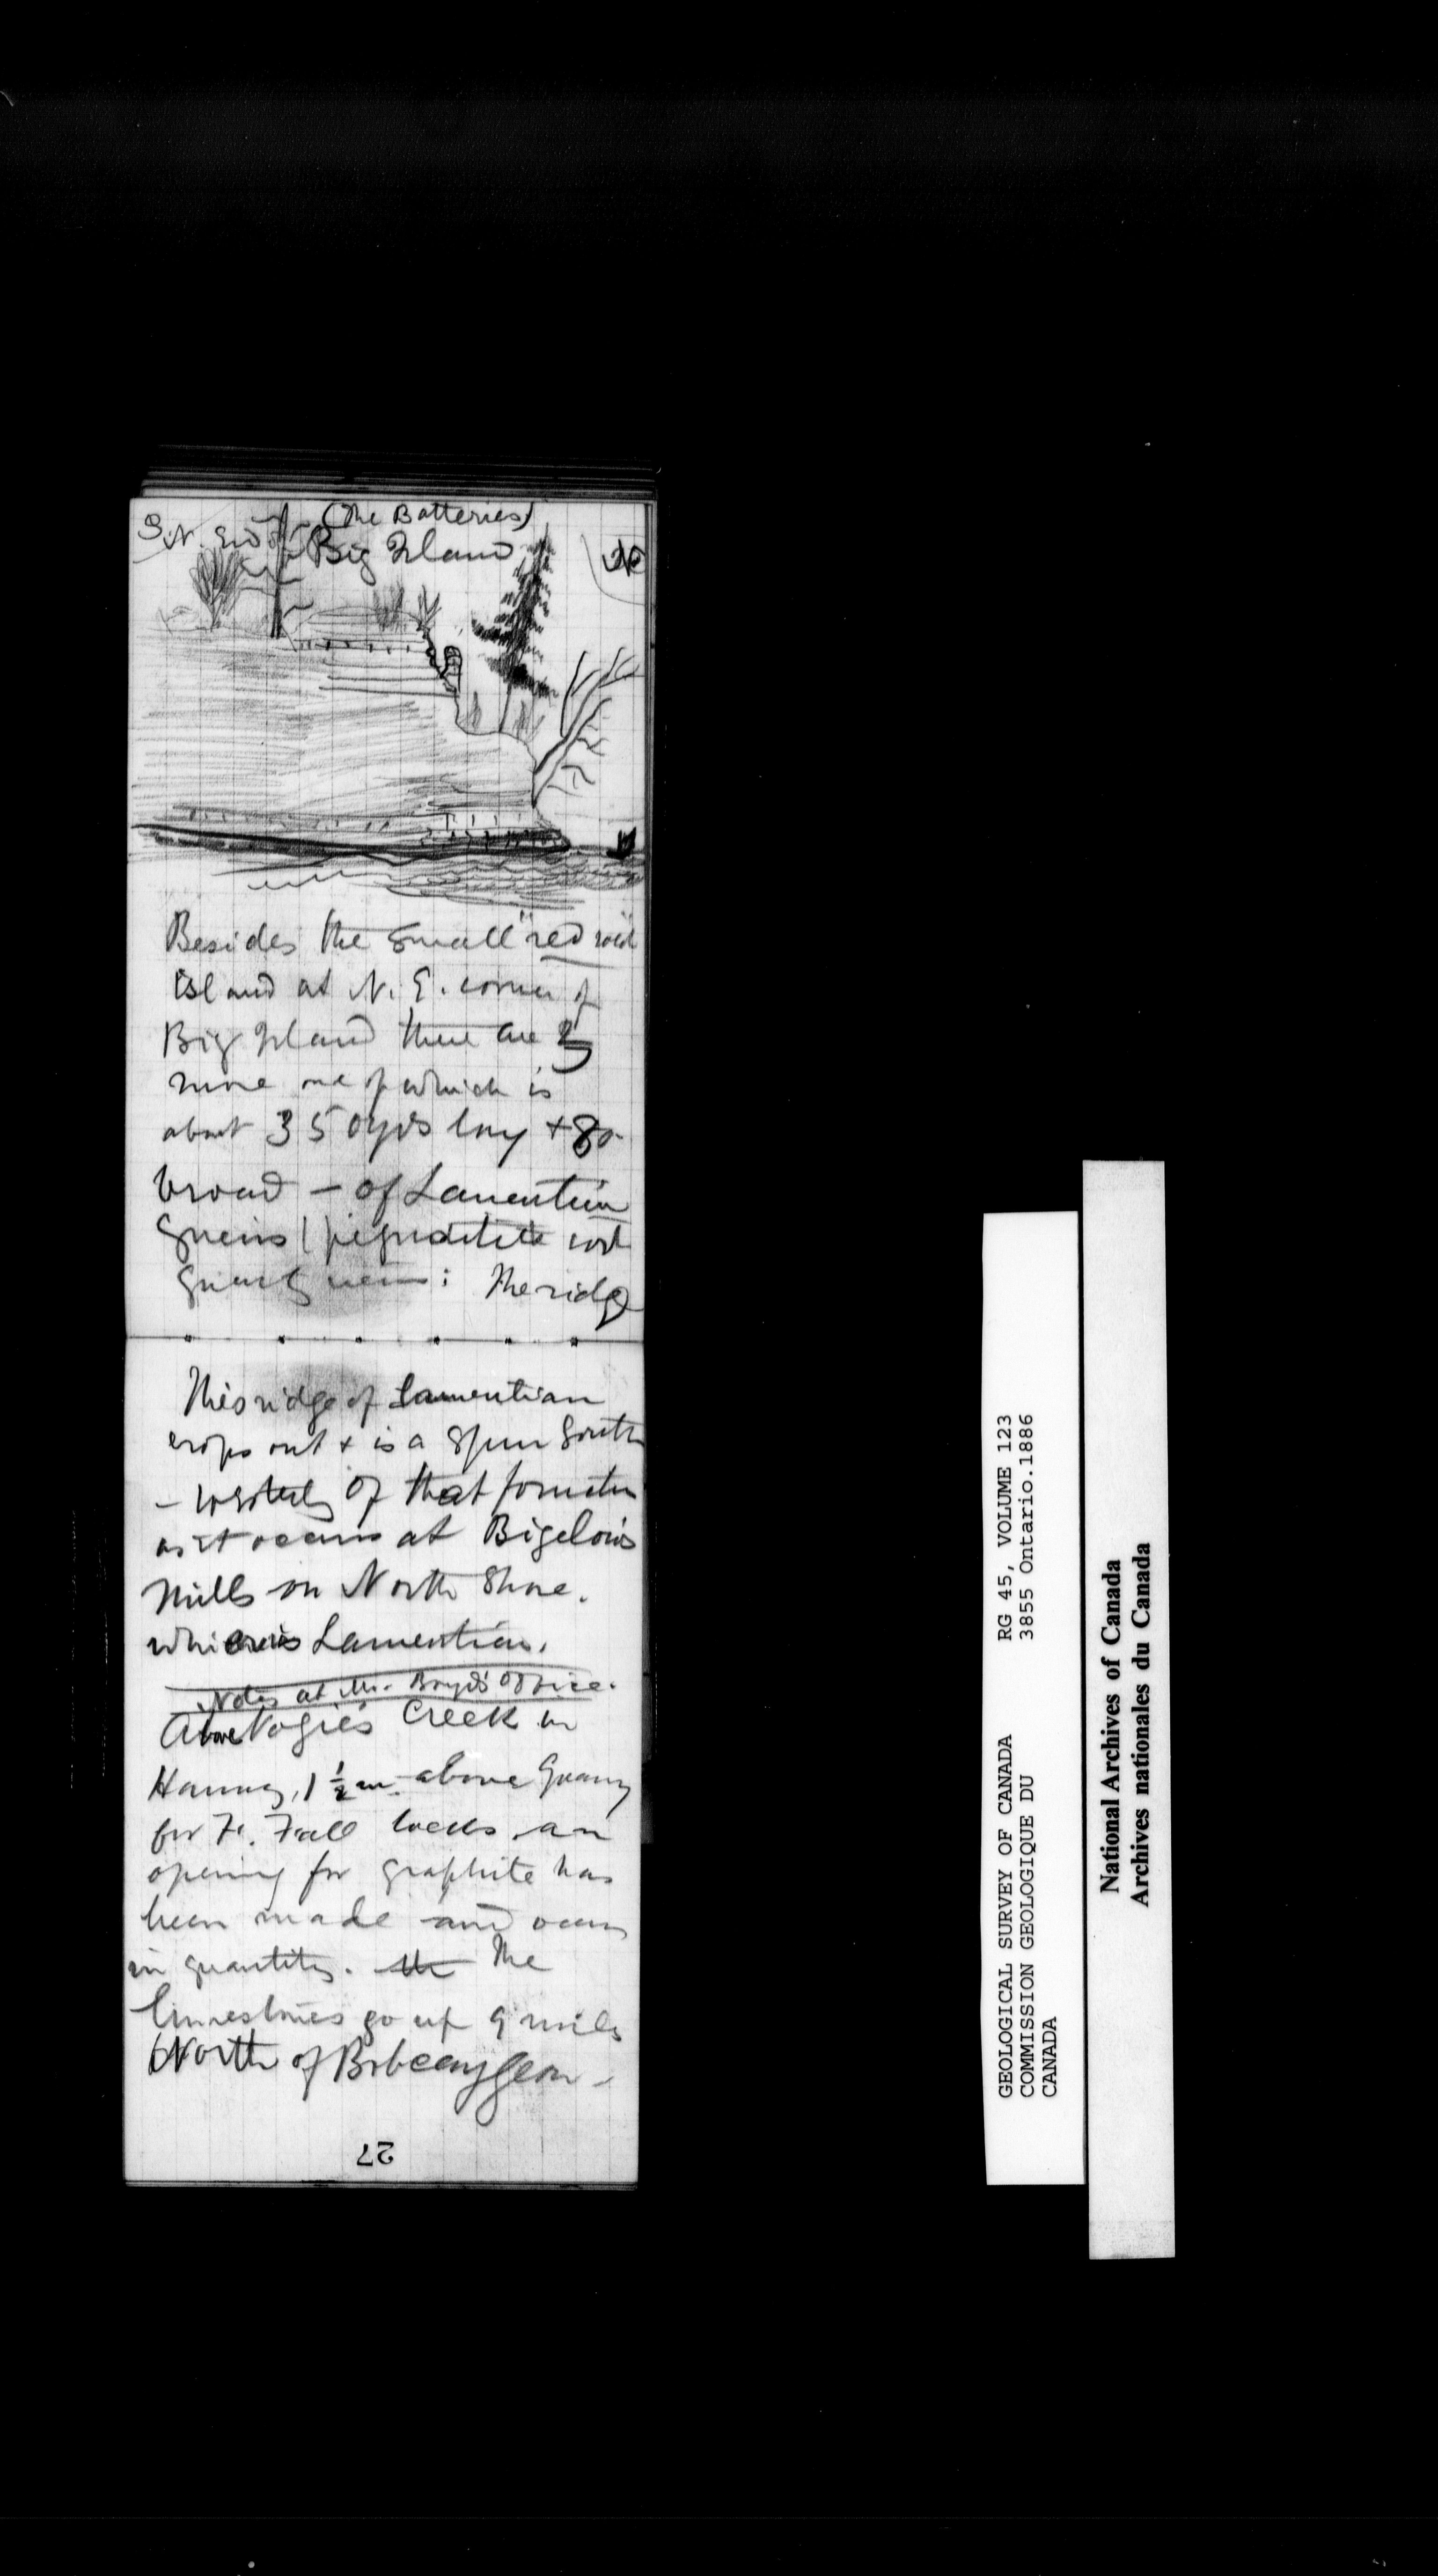 (The Batteries)
S.W. End of Big Island
Besides the small "red rock"
island at N. E. corner of
Big Island there are 3
more one of which is
about 350 yds long + 80
broad — of Laurentian
Gneiss
: The ridge
This ridge of Laurentian
crops out + is a spur South
- westerly of that formation
as it occurs at Bigelow's
Mills on North Shore.
which is Laurentian.
Notes at Mr. Boyd's Office.
Above Nogie's Creek in
Harvey, 1 1/2 m. above Quarry
for F. Fall locks an
opening for graphite has
been made and occurs
in quantity. The
limestones go up 9 miles
North of Bobcaygeon -
27
GEOLOGICAL SURVEY OF CANADA RG 45, VOLUME 123
COMMISSION GEOLOGIQUE DU 3855 Ontario.1886
CANADA
National Archives of Canada
Archives nationales du Canada